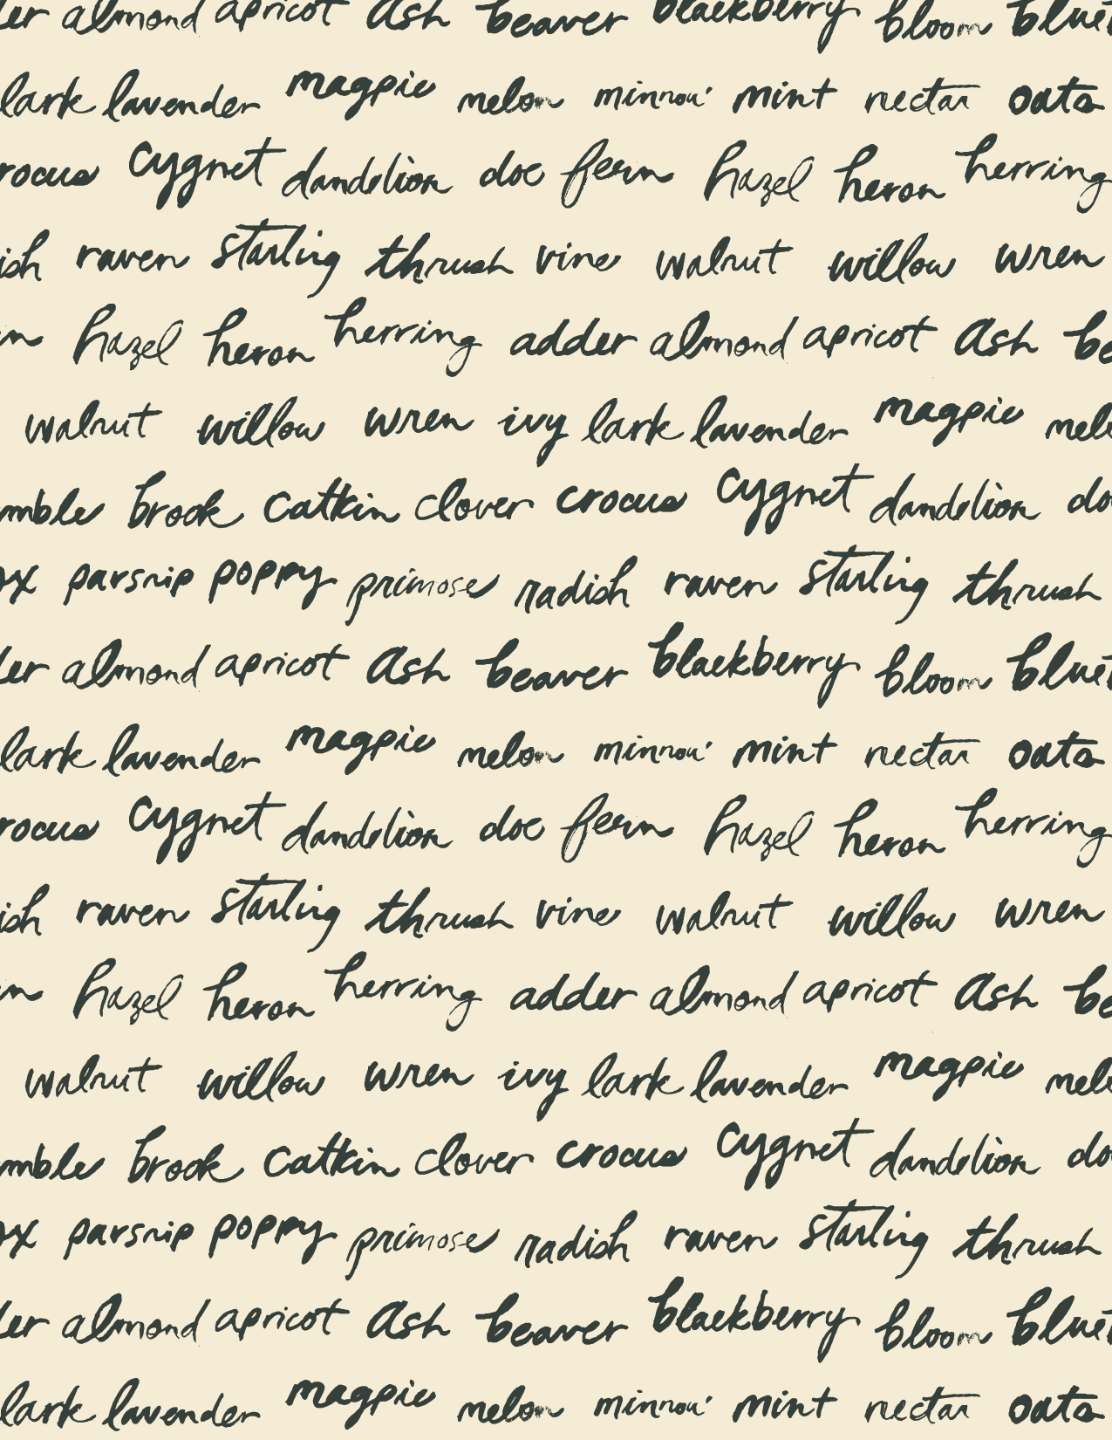 almond apricot ash beaver blackberry bloom
lark lavender magpie melon minnow mint nectar oats
cygnet dandelion doe fern hazel heron herring
raven starling thrush vine walnut willow wren
hazel heron herring adder almond apricot ash be
walnut willow wren ivy lark lavender magpie
mble brook catkin clover crocus cygnet dandelion
ox parsnip poppy primose radish raven starling thrush
almond apricot ash beaver blackberry bloom
lark lavender magpie melon minnow mint nectar oats
rocus cygnet dandelion doe fern hazel heron herring
ish raven starling thrush vine walnut willow wren
hazel heron herring adder almond apricot ash be
walnut willow wren ivy lark lavender magpie
mble brook catkin clover crocus cygnet dandelion
ox parsnip poppy primose radish raven starling thrush
almond apricot ash beaver blackberry bloom
lark lavender magpie melon minnow mint nectar oats